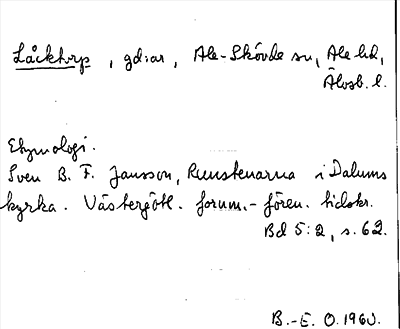 Låcktorp, gd:ar, Ale-Skövde sn, Ale hd,
Älvsb. l.
Etymologi.
Sven B. F. Jansson, Runstenarna i Dalums
kyrka. Västergötl. forum.-fören. tidskr.
Bd 5:2, s. 62.
B.-E. O. 1960.